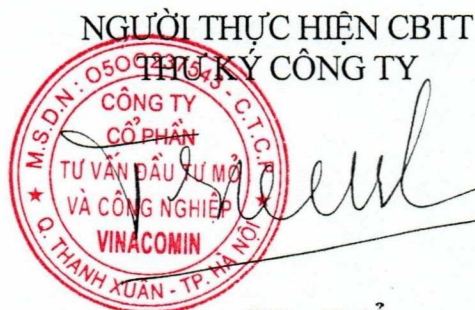 NGƯỜI THỰC HIỆN CBTT
THƯ KÝ CÔNG TY
M.S.D.N: 0500237543 - C.T.C.P
CÔNG TY
CỔ PHẦN
TƯ VẤN ĐẦU TƯ MỎ
VÀ CÔNG NGHIỆP
VINACOMIN
Q. THANH XUÂN - TP. HÀ NỘI